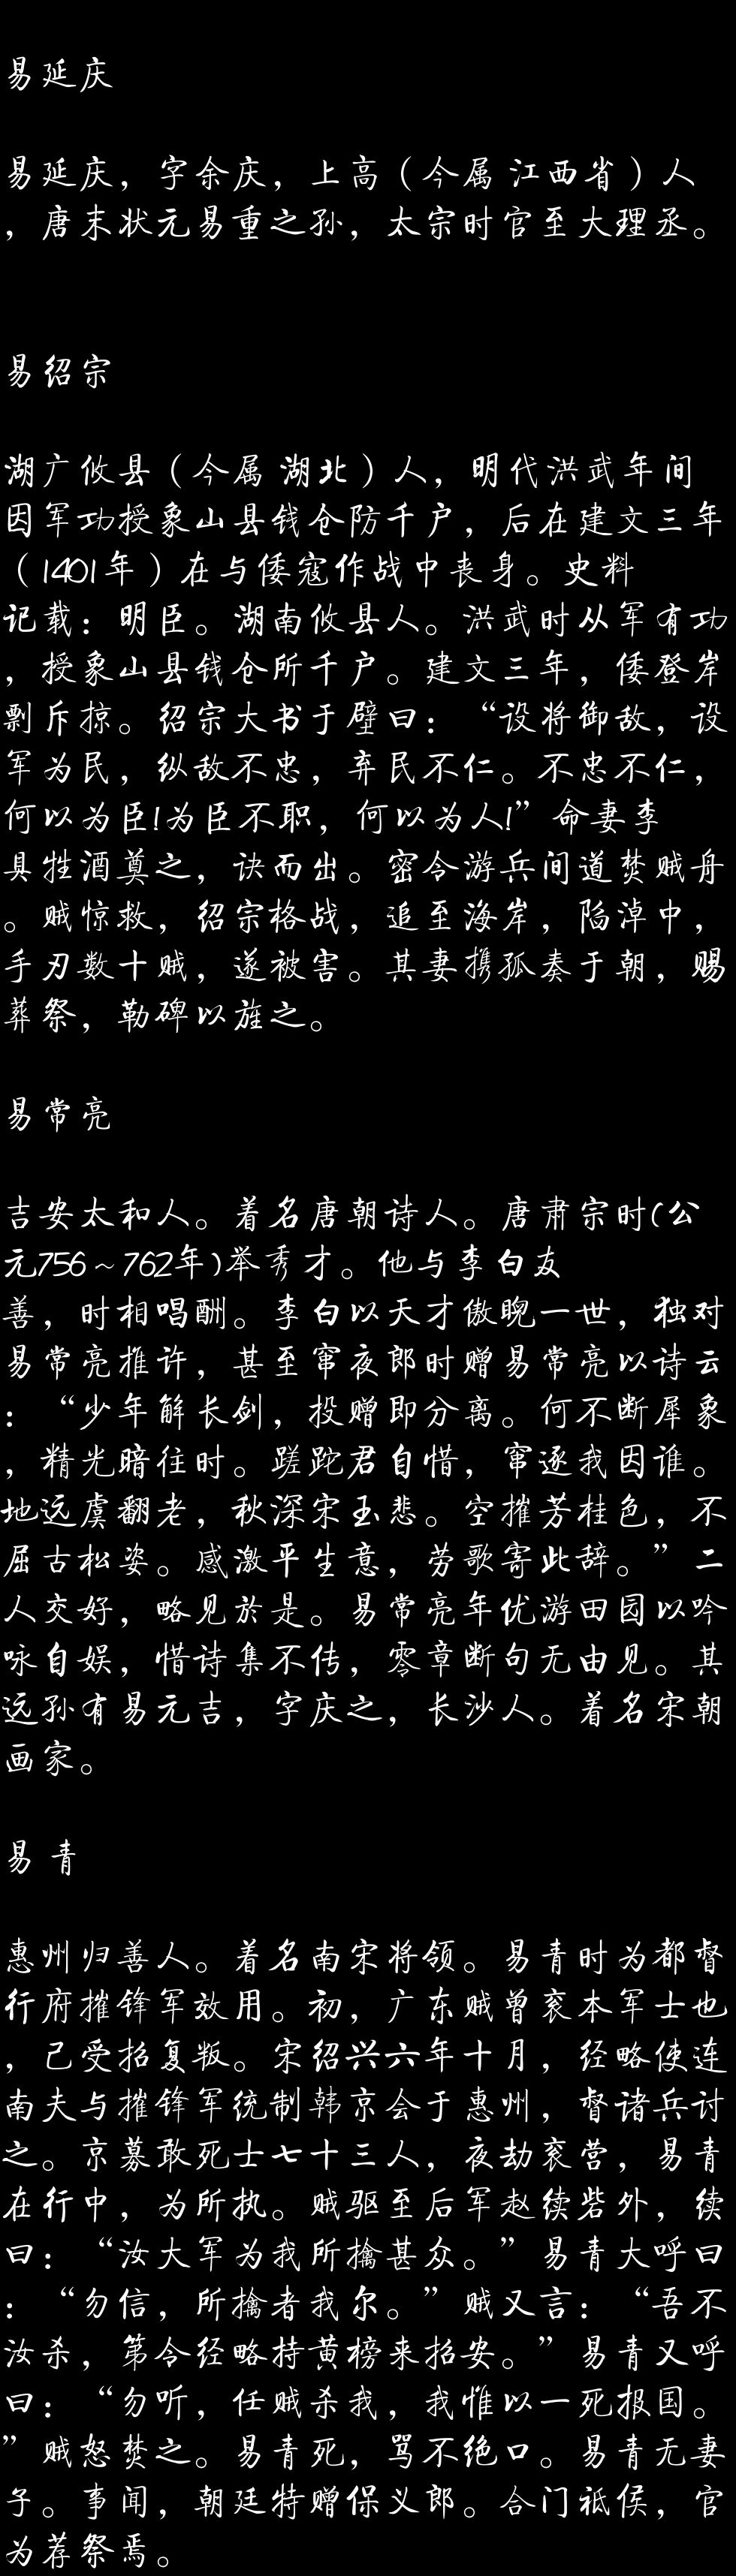 易延庆
易延庆，字余庆，上高（今属 江西省）人
，唐末状元易重之孙，太宗时官至大理丞。
易绍宗
湖广攸县（今属 湖北）人，明代洪武年间
因军功授象山县钱仓防千户，后在建文三年
（1401年）在与倭寇作战中丧身。史料
记载：明臣。湖南攸县人。洪武时从军有功
，授象山县钱仓所千户。建文三年，倭登岸
剽斥掠。绍宗大书于壁曰：“设将御敌，设
军为民，纵敌不忠，弃民不仁。不忠不仁，
何以为臣!为臣不职，何以为人!”命妻李
具牲酒奠之，诀而出。密令游兵间道焚贼舟
。贼惊救，绍宗格战，追至海岸，陷淖中，
手刃数十贼，遂被害。其妻携孤奏于朝，赐
葬祭，勒碑以旌之。
易常亮
吉安太和人。着名唐朝诗人。唐肃宗时(公
元756～762年)举秀才。他与李白友
善，时相唱酬。李白以天才傲睨一世，独对
易常亮推许，甚至窜夜郎时赠易常亮以诗云
：“少年解长剑，投赠即分离。何不断犀象
，精光暗往时。蹉跎君自惜，窜逐我因谁。
地远虞翻老，秋深宋玉悲。空摧芳桂色，不
屈古松姿。感激平生意，劳歌寄此辞。”二
人交好，略见於是。易常亮年优游田园以吟
咏自娱，惜诗集不传，零章断句无由见。其
远孙有易元吉，字庆之，长沙人。着名宋朝
画家。
易 青
惠州归善人。着名南宋将领。易青时为都督
行府摧锋军效用。初，广东贼曾衮本军士也
，已受招复叛。宋绍兴六年十月，经略使连
南夫与摧锋军统制韩京会于惠州，督诸兵讨
之。京募敢死士七十三人，夜劫衮营，易青
在行中，为所执。贼驱至后军赵续砦外，续
曰：“汝大军为我所擒甚众。”易青大呼曰
：“勿信，所擒者我尔。”贼又言：“吾不
汝杀，第令经略持黄榜来招安。”易青又呼
曰：“勿听，任贼杀我，我惟以一死报国。
”贼怒焚之。易青死，骂不绝口。易青无妻
子。事闻，朝廷特赠保义郎。合门祗侯，官
为荐祭焉。